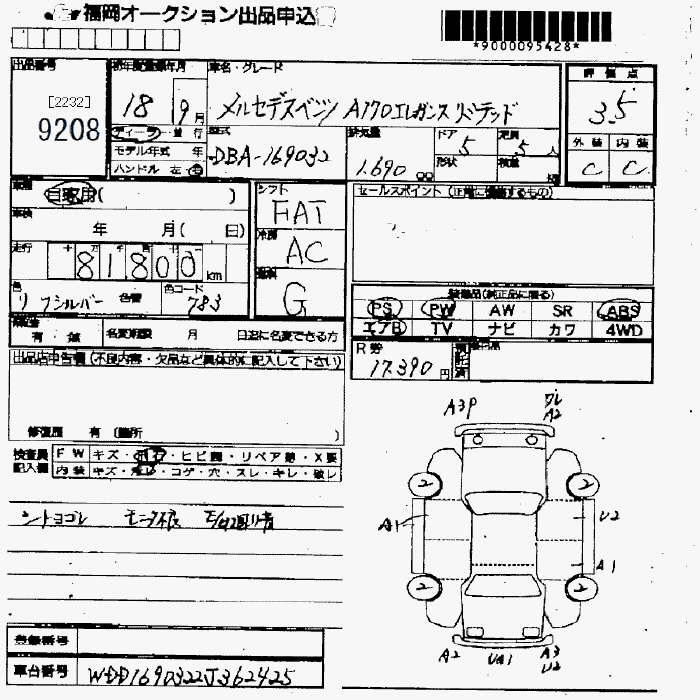 福岡オークション出品申込
*9000095428*
出品番号
初年度登録年月
車名・グレード
評価点
[2232]
9208
18
9月
メルセデスベンツ A170エレガンス リミテッド
3.5
ディーラー・並行
型式
排気量
ドア
定員
モデル年式 年
DBA-169032
1.690 cc
5
5人
外装
内装
ハンドル 左・右
形状
積量
kg
C
C
車歴
自家用( )
シフト
FAT
セールスポイント(正常に機能するもの)
車検
年 月( 日)
冷房
AC
走行
十 万 千 百 十
81800 km
燃料
G
色
シルバー
色替
色コード
783
装備品(純正品に限る)
PS PW AW SR ABS
エアB TV ナビ カワ 4WD
有・無
名変期限 月 日迄に名変できる方
R券
17.390円
出品店申告欄(不良内容・欠品など具体的に記入して下さい)
修復歴 有(箇所 )
検査員
記入欄
FW
キズ・飛石・ヒビ割・リペア跡・X要
内装
キズ・汚レ・コゲ・穴・スレ・キレ・破レ
A3P
A2
2
2
A1
U2
A1
2
2
A2
UA1
A3
U2
登録番号
車台番号
WDD1690322J362425